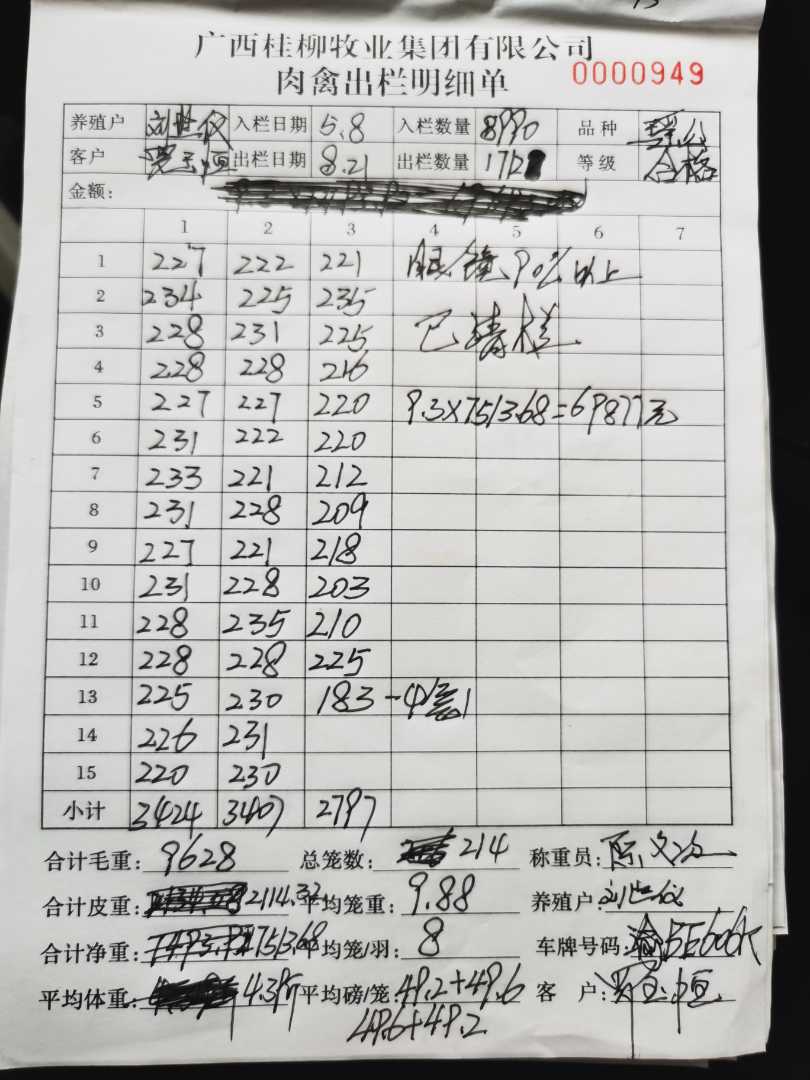 广西桂柳牧业集团有限公司
肉禽出栏明细单 0000949
养殖户 刘世仪 入栏日期 5.8 入栏数量 8990 品种
客户 出栏日期 8.21 出栏数量 171 等级 合格
金额:
1 2 3 4 5 6 7
1 227 222 221 眼镜90%以上
2 234 225 235
3 228 231 225 已清栏
4 228 228 216
5 227 227 220 9.3×7513.68=69877元
6 231 222 220
7 233 221 212
8 231 228 209
9 227 221 218
10 231 228 203
11 228 235 210
12 228 228 225
13 225 230 183
14 226 231
15 220 230
小计 3424 3407 2797
合计毛重: 9628 总笼数: 214 称重员:
合计皮重: 2114.32 平均笼重: 9.88 养殖户: 刘世仪
合计净重: 7513.68 平均笼/羽: 8 车牌号码:
平均体重: 4.39 平均磅/笼: 49.2+49.6 客 户:
49.6+49.2